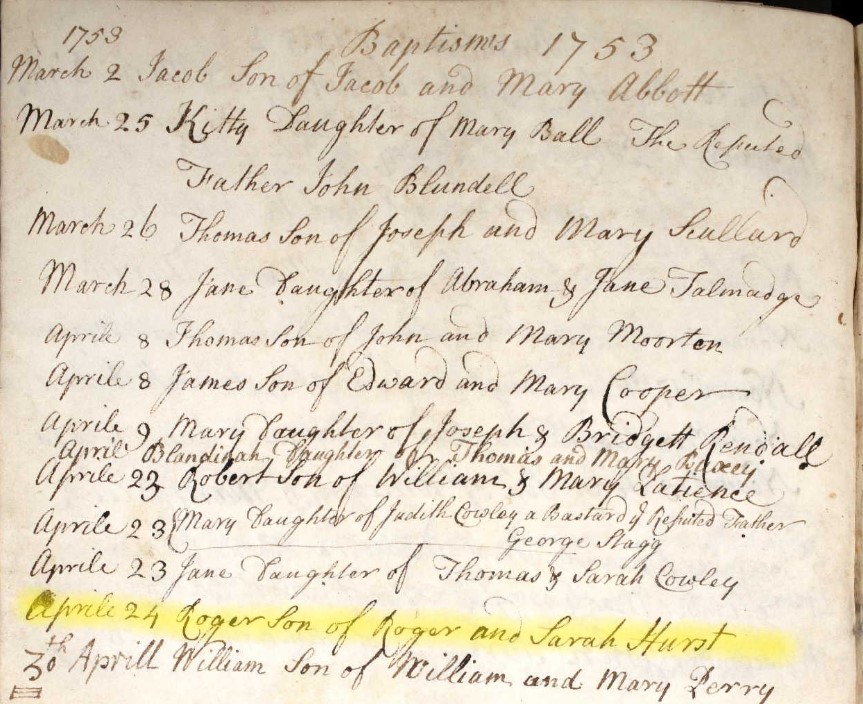 1753 Baptisms 1753
March 2 Jacob Son of Jacob and Mary Abbott
March 25 Kitty Daughter of Mary Ball The Reputed
Father John Blundell
March 26 Thomas Son of Joseph and Mary Scullard
March 28 Jane Daughter of Abraham & Jane Talmadge
Aprile 8 Thomas Son of John and Mary Moorton
Aprile 8 James Son of Edward and Mary Cooper
Aprile 9 Mary Daughter of Joseph & Bridgett Kendall
April Blandinah Daughter of Thomas and Mary
Aprile 23 Robert Son of William & Mary Patience
Aprile 23 Mary Daughter of Judith Cowley a Bastard ye Reputed Father
George Stagg
Aprile 23 Jane Daughter of Thomas & Sarah Cowley
Aprile 24 Roger Son of Roger and Sarah Hurst
30th Aprill William Son of William and Mary Perry